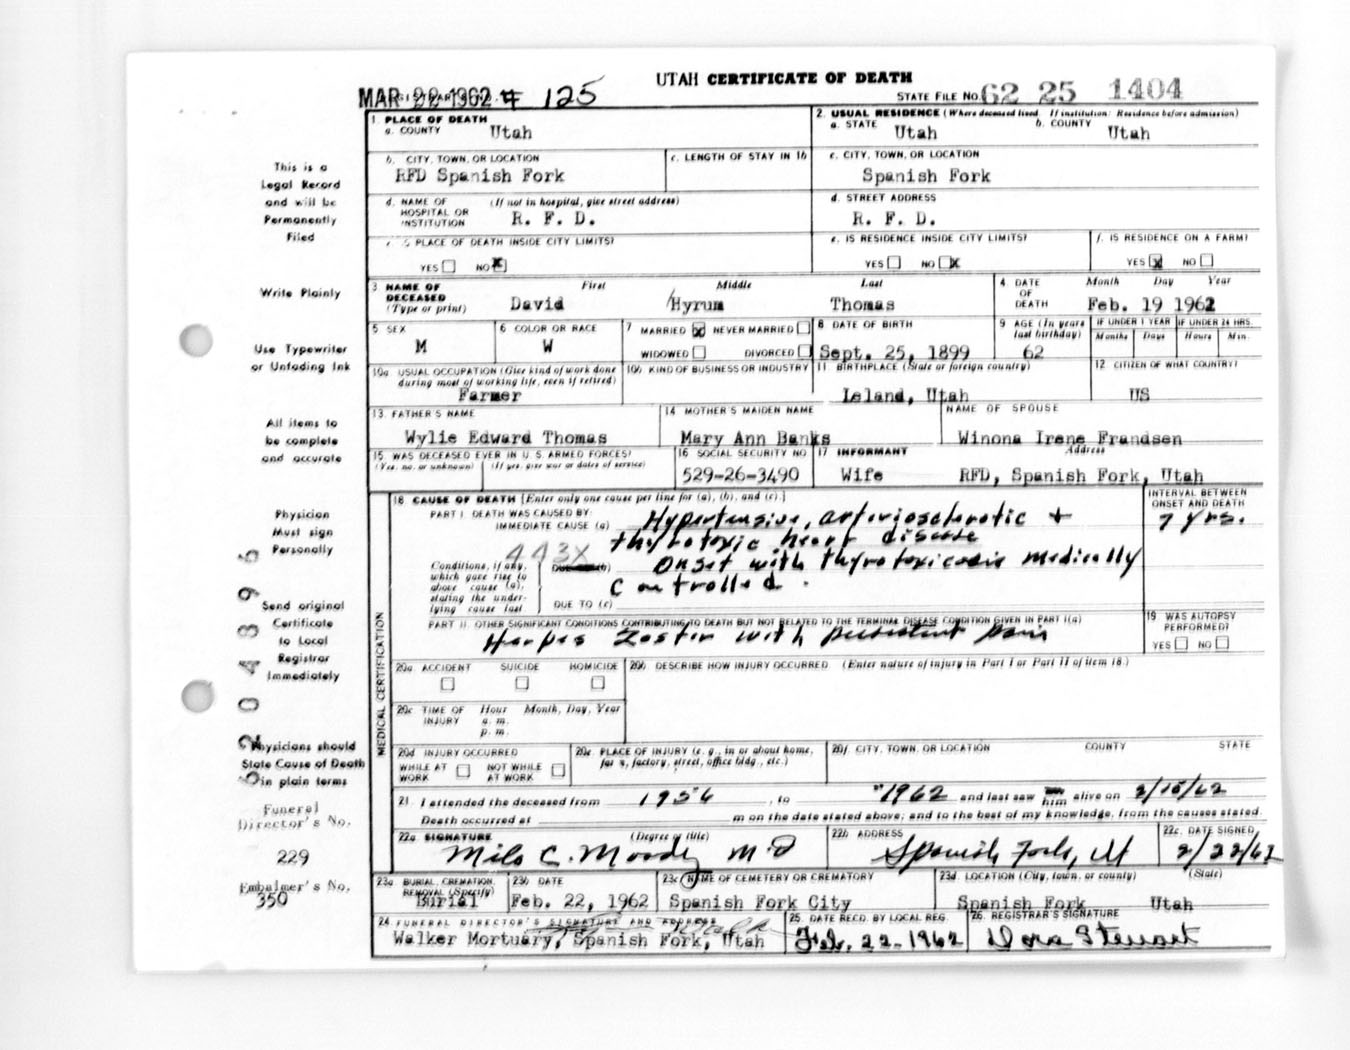 UTAH CERTIFICATE OF DEATH
MAR 22 1962 # 125
STATE FILE NO. 62 25 1404
1. PLACE OF DEATH
a. COUNTY Utah
2. USUAL RESIDENCE (Where deceased lived. If institution: Residence before admission)
a. STATE Utah b. COUNTY Utah
b. CITY, TOWN, OR LOCATION
RFD Spanish Fork
c. LENGTH OF STAY IN 1b
c. CITY, TOWN, OR LOCATION
Spanish Fork
d. NAME OF HOSPITAL OR INSTITUTION (If not in hospital, give street address)
R. F. D.
d. STREET ADDRESS
R. F. D.
IS PLACE OF DEATH INSIDE CITY LIMITS?
YES NO X
e. IS RESIDENCE INSIDE CITY LIMITS?
YES NO X
f. IS RESIDENCE ON A FARM?
YES X NO
3 NAME OF DECEASED (Type or print)
First Middle Last
David Hyrum Thomas
4 DATE OF DEATH
Month Day Year
Feb. 19 1962
5 SEX
M
6 COLOR OR RACE
W
7 MARRIED X NEVER MARRIED
WIDOWED DIVORCED
8 DATE OF BIRTH
Sept. 25, 1899
9 AGE (In years last birthday)
62
IF UNDER 1 YEAR
Months Days
IF UNDER 24 HRS.
Hours Min.
10a USUAL OCCUPATION (Give kind of work done during most of working life, even if retired)
Farmer
10b KIND OF BUSINESS OR INDUSTRY
11 BIRTHPLACE (State or foreign country)
Leland, Utah
12 CITIZEN OF WHAT COUNTRY?
US
13. FATHER'S NAME
Wylie Edward Thomas
14 MOTHER'S MAIDEN NAME
Mary Ann Banks
NAME OF SPOUSE
Winona Irene Frandsen
15 WAS DECEASED EVER IN U.S. ARMED FORCES?
(Yes, no, or unknown) (If yes, give war or dates of service)
16 SOCIAL SECURITY NO
529-26-3490
17 INFORMANT Address
Wife RFD, Spanish Fork, Utah
18 CAUSE OF DEATH [Enter only one cause per line for (a), (b), and (c).]
INTERVAL BETWEEN ONSET AND DEATH
PART I. DEATH WAS CAUSED BY:
IMMEDIATE CAUSE (a) Hypertensive, arteriosclerotic +
7 yrs.
thyrotoxic heart disease
443X
Conditions, if any, which gave rise to above cause (a), stating the underlying cause last
DUE TO (b) Onset with thyrotoxicosis medically
Controlled.
DUE TO (c)
PART II. OTHER SIGNIFICANT CONDITIONS CONTRIBUTING TO DEATH BUT NOT RELATED TO THE TERMINAL DISEASE CONDITION GIVEN IN PART I(a)
Herpes Zoster with persistent pain
19 WAS AUTOPSY PERFORMED?
YES NO
MEDICAL CERTIFICATION
20a ACCIDENT SUICIDE HOMICIDE
20b DESCRIBE HOW INJURY OCCURRED (Enter nature of injury in Part I or Part II of item 18.)
20c TIME OF INJURY Hour Month, Day, Year
a. m.
p. m.
20d INJURY OCCURRED
WHILE AT WORK NOT WHILE AT WORK
20e. PLACE OF INJURY (e. g., in or about home, farm, factory, street, office bldg., etc.)
20f. CITY, TOWN, OR LOCATION COUNTY STATE
21. I attended the deceased from 1956, to 1962 and last saw him alive on 2/15/62
Death occurred at m on the date stated above; and to the best of my knowledge, from the causes stated.
22a SIGNATURE (Degree or title)
Milo C. Moody MD
22b ADDRESS
Spanish Fork, Ut
22c. DATE SIGNED
2/22/62
23a BURIAL, CREMATION REMOVAL (Specify)
Burial
23b DATE
Feb. 22, 1962
23c NAME OF CEMETERY OR CREMATORY
Spanish Fork City
23d. LOCATION (City, town, or county) (State)
Spanish Fork Utah
24 FUNERAL DIRECTOR'S SIGNATURE AND ADDRESS
Walker Mortuary, Spanish Fork, Utah
25. DATE RECD. BY LOCAL REG.
Feb. 22-1962
26. REGISTRAR'S SIGNATURE
Dora Stewart
This is a
Legal Record
and will be
Permanently
Filed
Write Plainly
Use Typewriter
or Unfading Ink
All items to
be complete
and accurate
Physician
Must sign
Personally
Send original
Certificate
to Local
Registrar
Immediately
Physicians should
State Cause of Death
in plain terms
Funeral
Director's No.
229
Embalmer's No.
350